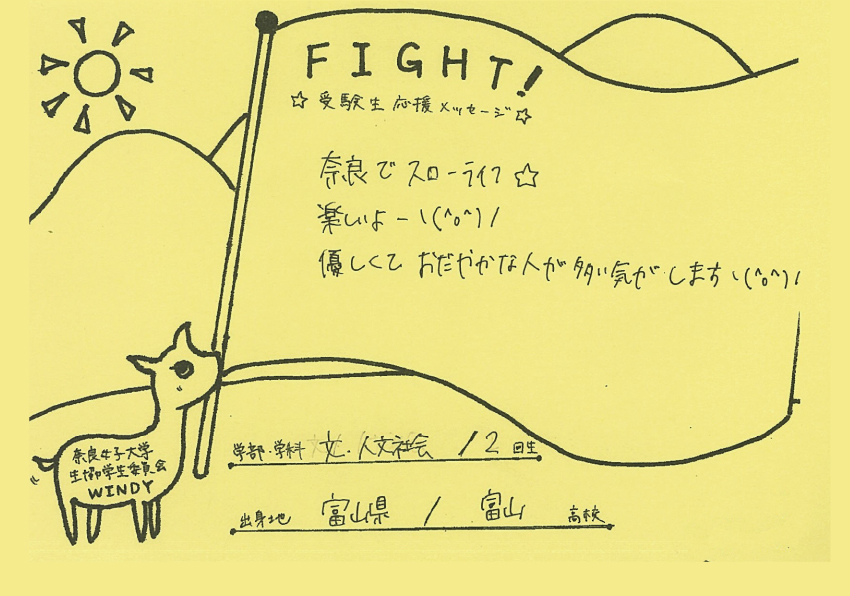 FIGHT!
☆ 受験生 応援 メッセージ☆
奈良でスローライフ☆
楽しいよーヽ(^o^)ノ
優しくて おだやかな人が多い気がしますヽ(^o^)ノ
学部・学科 文・人文社会 / 2 回生
奈良女子大学
生協学生委員会
WINDY
出身地 富山県 / 富山 高校